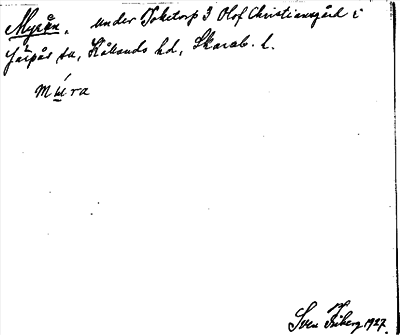 Myrån, under Toketorp 3 Olof Christiansgård i
Järpås sn, Kållands hd, Skarab. l.
múra
Sven Friberg 1927.